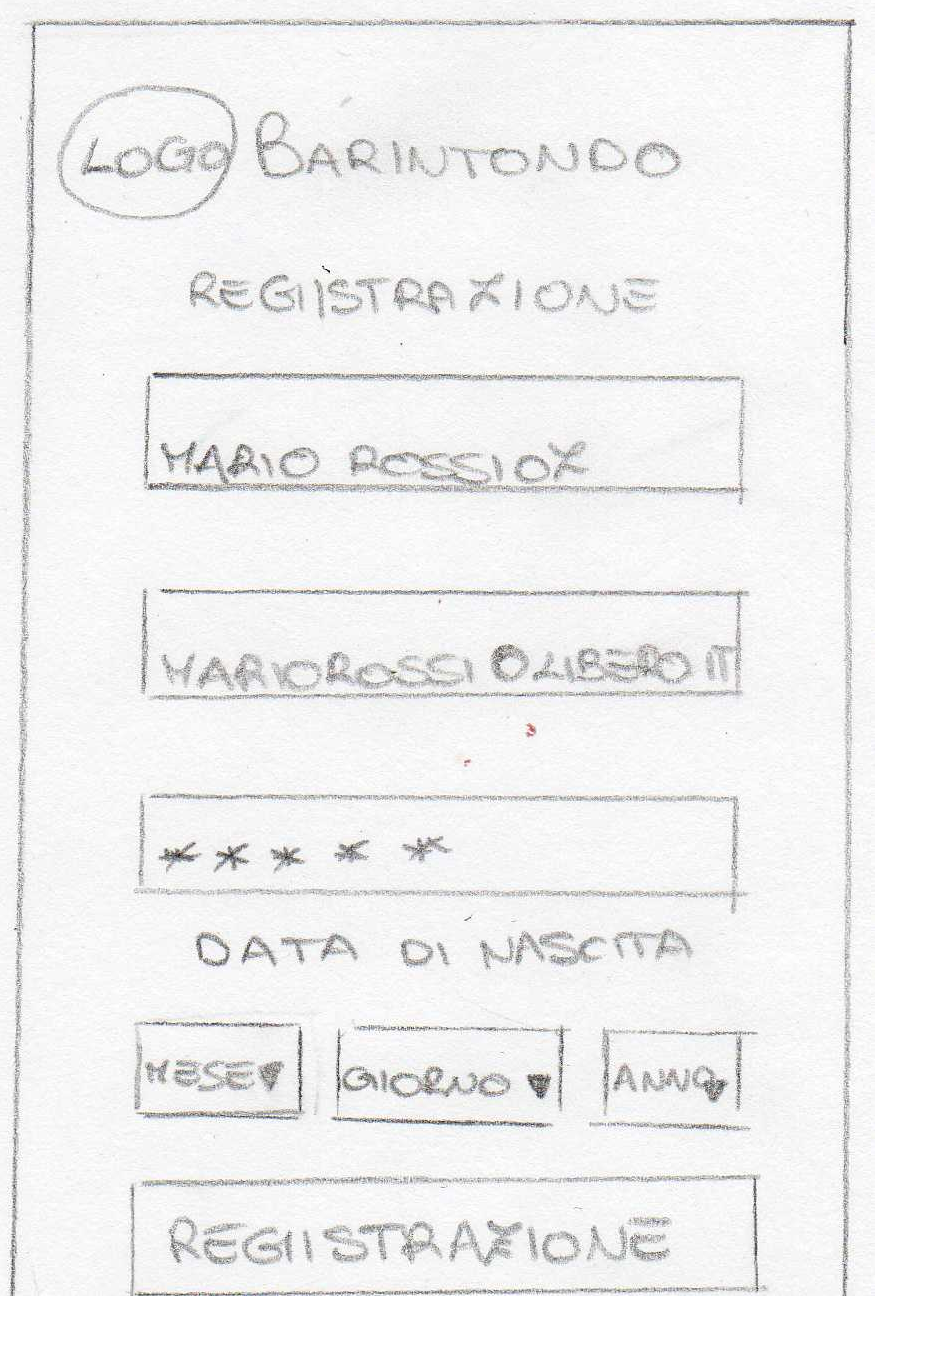 LOGO BARINTONDO
REGIISTRAZIONE
MARIO ROSSI
MARIOROSSI@LIBERO IT
* * * * *
DATA DI NASCITA
MESE▼ GIORNO ▼ ANNO▼
REGIISTRAZIONE